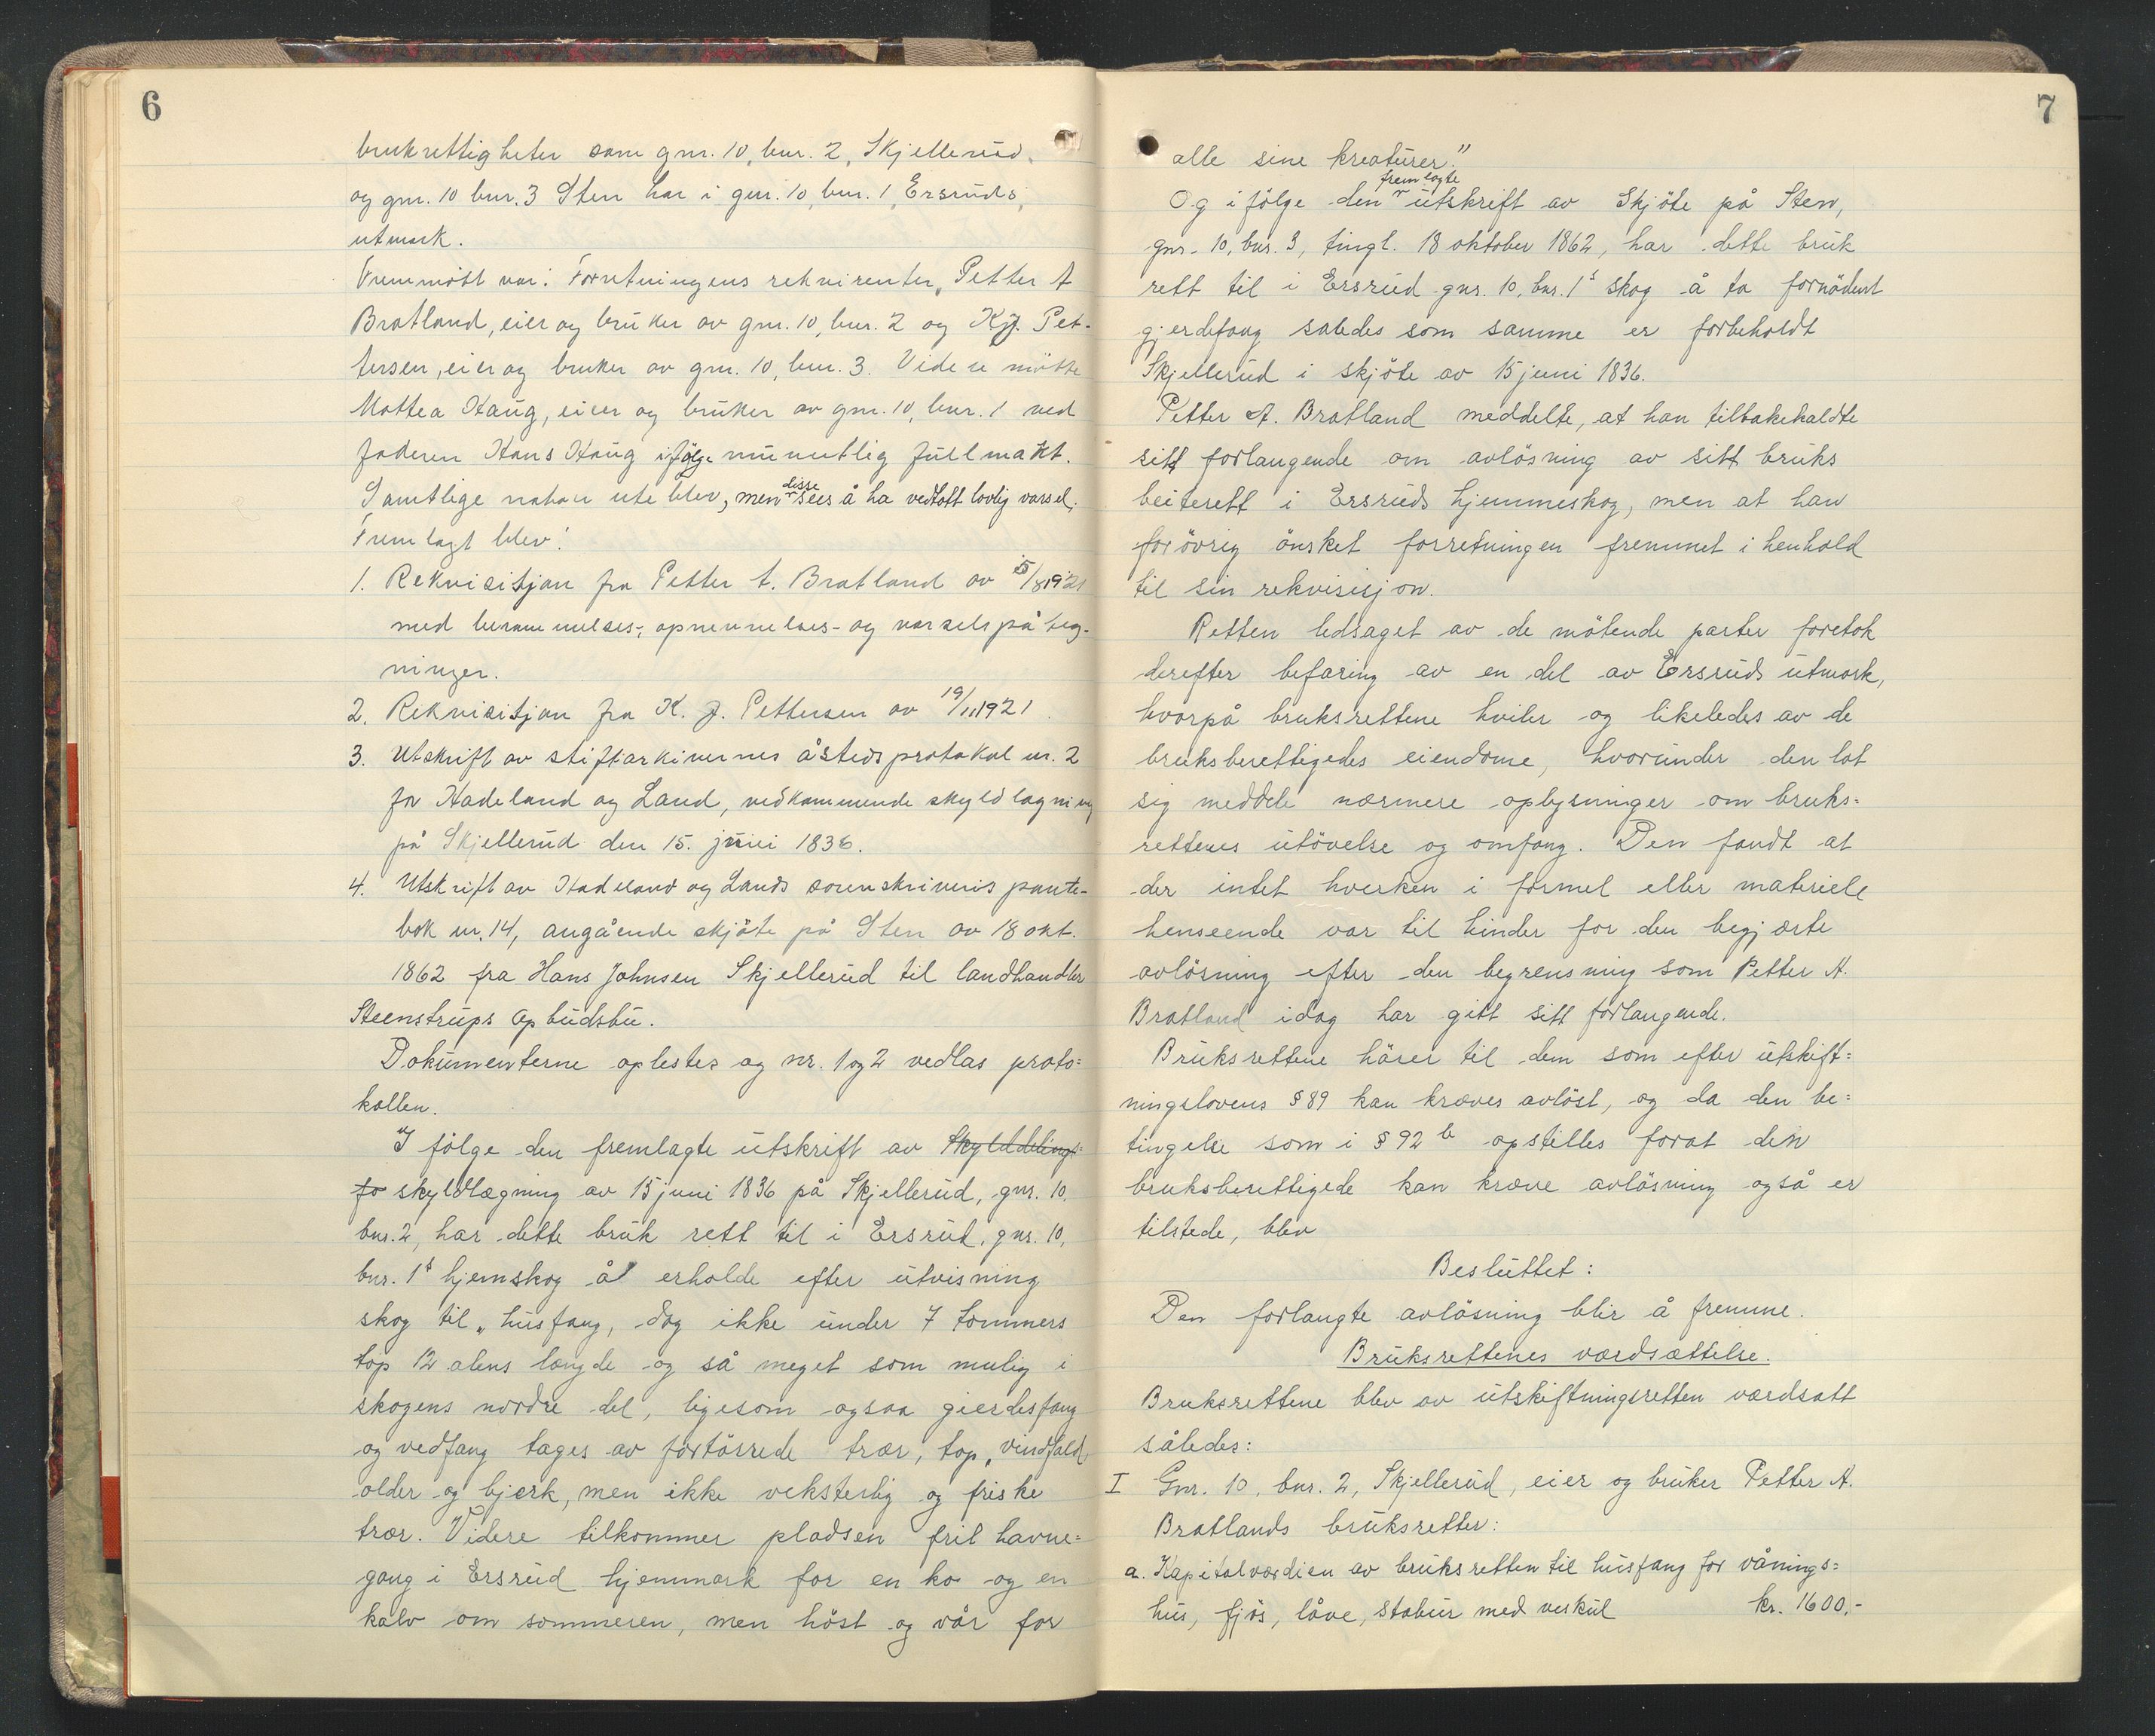 6
brukrettigheter som gnr. 10, bnr. 2, Skjellerud,
og gnr. 10 bnr. 3 Sten har i gnr. 10, bnr. 1, Ersruds,
utmark.
Fremmött var: Forretningens rekvirenter, Petter A
Bratland, eier og bruker av gnr. 10, bnr. 2 og K. J. Pet-
tersen, eier og bruker av gnr. 10, bnr. 3. Videre mötte
Mathea Haug, eier og bruker av gnr. 10, bnr. 1 ved
faderen Hans Haug ifölge muntlig fullmakt.
Samtlige naboer ute blev, men disse sees å ha vedtatt lovlig varsel.
Fremlagt blev:
1. Rekvisitjon fra Petter A. Bratland av 15/8 1921
med berammelses-, opnevnelses- og varselspåteg-
ninger.
2. Rekvisitjon fra K. J. Pettersen av 19/11 1921
3. Utskrift av stiftarkivernes åstedsprotokol nr. 2
for Hadeland og Land, vedkommende skyldlagning
på Skjellerud den 15. juni 1836.
4. Utskrift av Hadeland og Lands sorenskriveris pante-
bok nr. 14, angående skjöte på Sten av 18 okt.
1862 fra Hans Johnsen Skjellerud til landhandler
Steenstrups Opbudsbu.
Dokumenterne oplestes og nr. 1 og 2 vedlas proto=
kollen.
I fölge den fremlagte utskrift av Skylddelings=
fo skyldlægning av 15 juni 1836 på Skjellerud, gnr. 10,
bnr. 2, har dette bruk rett til i Ersrud, gnr. 10,
bnr. 1s hjemskog å erholde efter utvisning
skog til „husfang, dog ikke under 7 tommers
top 12 alens længde og så meget som mulig i
skogens nordre del, ligesom ogsaa gierdesfang
og vedfang tages av fortörrede trær, top, vindfald
older og bjerk, men ikke veksterlig og friske
trær. Videre tilkommer pladsen frit havne=
gang i Ersrud hjemmark for en ko og en
kalv om sommeren, men höst og vår for
7
alle sine kreaturer."
Og ifölge den fremlagte utskrift av Skjöte på Sten,
gnr. 10, bnr. 3, tingl. 18 oktober 1862, har dette bruk
rett til i Ersrud gnr. 10, bnr. 1s skog å ta fornödent
gjerdefang saledes som samme er forbeholdt
Skjellerud i skjöte av 15 juni 1836.
Petter A. Bratland meddelte, at han tilbakekaldte
sitt forlangende om avlösning av sitt bruks
beiterett i Ersruds hjemmeskog, men at han
forövrig önsket forretningen fremmet i henhold
til sin rekvisisjon.
Retten ledsaget av de mötende parter foretok
derefter befaring av en del av Ersruds utmark,
hvorpå bruksrettene hviler og likeledes av de
bruksberettigedes eiendome, hvorunder den lot
sig meddele nærmere oplysninger om bruks=
rettenes utövelse og omfang. Den fandt at
der intet hverken i formel eller materiell
henseende var til hinder for den begjærte
avlösning efter den begrensning som Petter A.
Bratland idag har gitt sitt forlangende.
Bruksrettene hörer til dem som efter utskift=
ningslovens § 89 kan kræves avlöst, og da den be=
tingelse som i § 92 b opstilles forat den
bruksberettigede kan kræve avlösning også er
tilstede, blev
Besluttet:
Den forlangte avlösning blir å fremme.
Bruksrettenes værdsættelse.
Bruksrettene blev av utskiftningsretten værdsatt
således:
I Gnr. 10, bnr. 2, Skjellerud, eier og bruker Petter A.
Bratlands bruksretter:
a. Kapitalværdien av bruksretten til husfang for vånings=
hus, fjös, låve, stabur med veskul kr. 1600,-